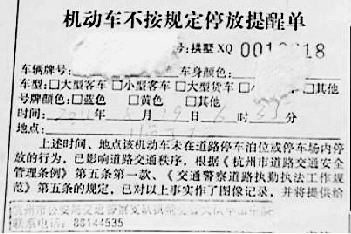 机动车不按规定停放提醒单
号:拱墅 XQ 001
车辆牌号: 车身颜色:
车型:□大型客车 □小型客车 □大型货车 □其他
号牌颜色:□蓝色 □黄色 □其他
时间: 201 年 月 19 日 时 35 分
地点:
上述时间、地点该机动车未在道路停车泊位或停车场内停
放的行为,已影响道路交通秩序,根据《杭州市道路交通安全
管理条例》第五条第一款、《交通警察道路执勤执法工作规
范》第五条的规定,已对以上事实作了图像记录,并将提供给
杭州市公安局交通警察支队拱墅
联系电话:88144535